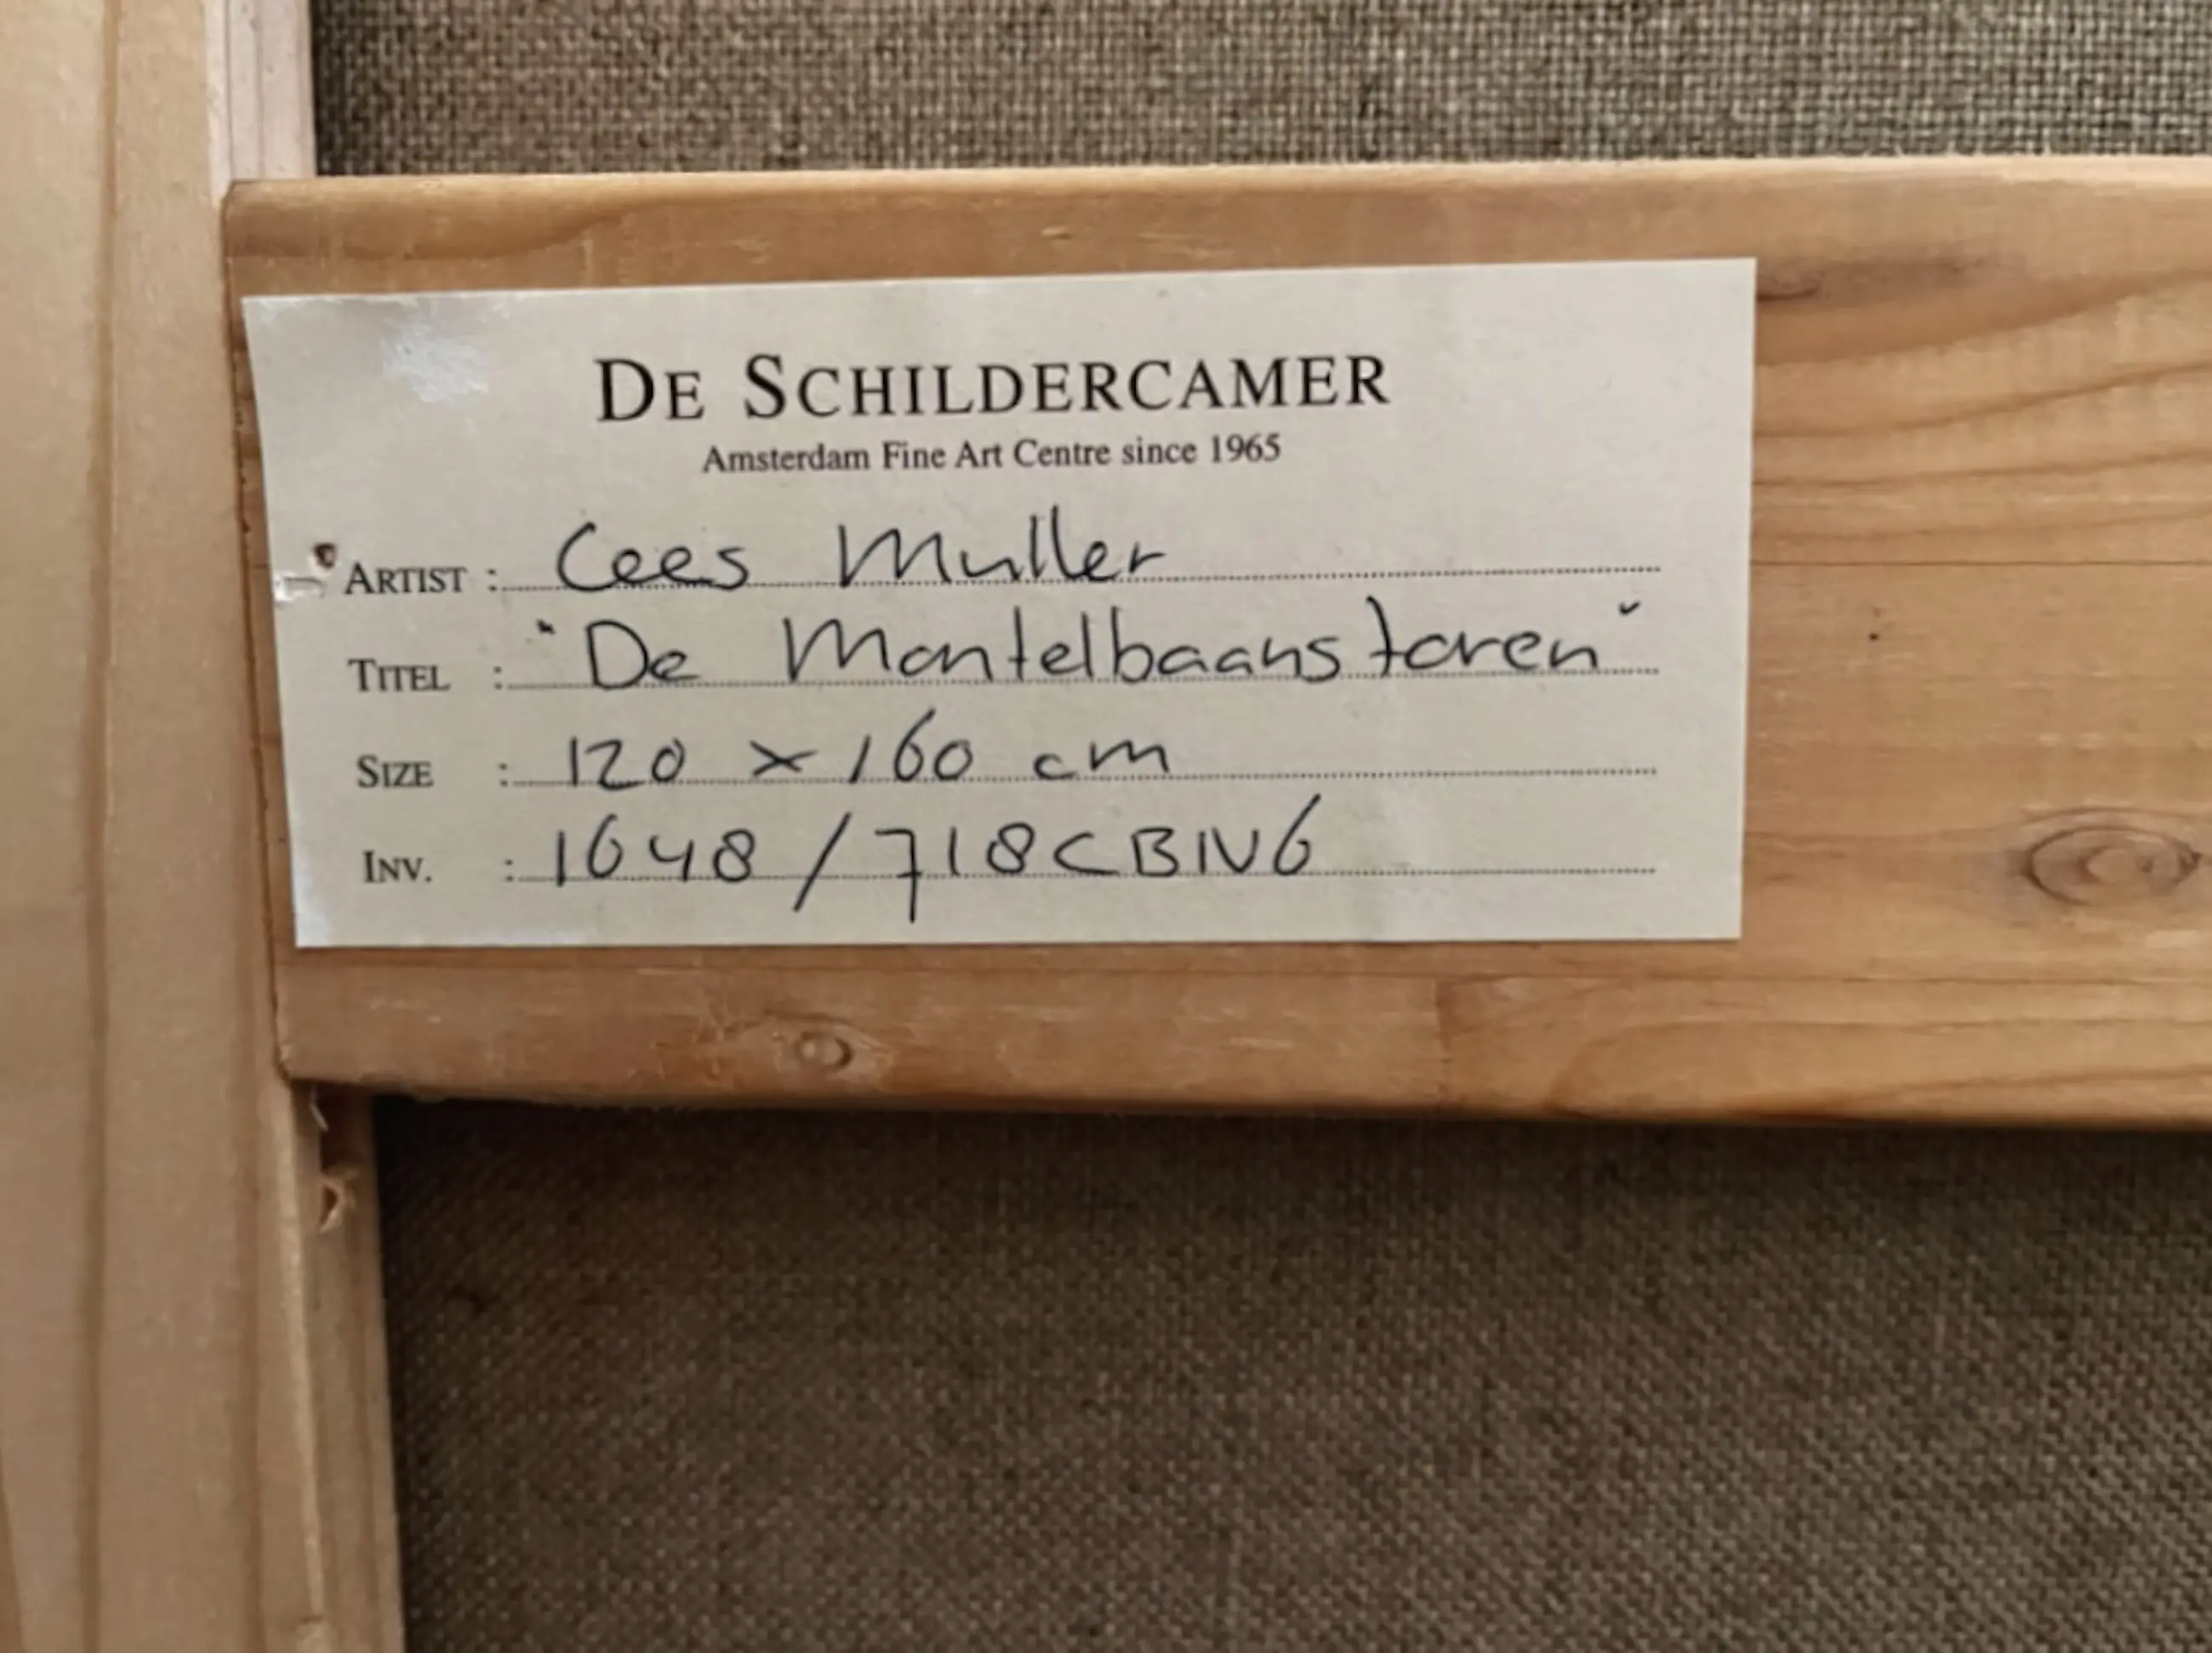 DE SCHILDERCAMER
Amsterdam Fine Art Centre since 1965
ARTIST : Cees Muller
TITEL : "De Montelbaanstoren"
SIZE : 120 x 160 cm
INV. : 1648 / 718CBNG